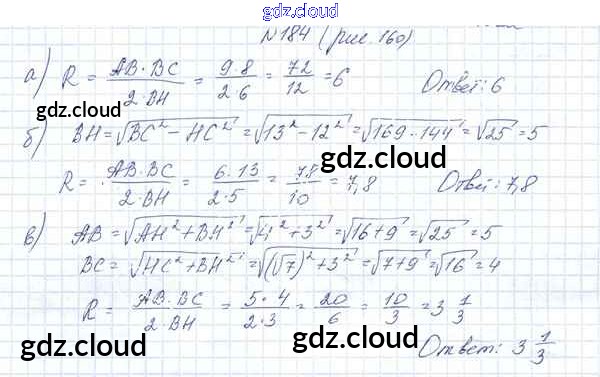 gdz.cloud
№184 (рис. 160)
а) R = AB·BC / 2·BH = 9·8 / 2·6 = 72 / 12 = 6 Ответ: 6
gdz.cloud gdz.cloud
б) BH = √(BC² - HC²) = √(13² - 12²) = √(169 - 144) = √25 = 5
gdz.cloud
R = AB·BC / 2·BH = 6·13 / 2·5 = 78 / 10 = 7,8 Ответ: 7,8
gdz.cloud gdz.cloud
в) AB = √(AH² + BH²) = √(4² + 3²) = √(16 + 9) = √25 = 5
BC = √(HC² + BH²) = √((√7)² + 3²) = √(7 + 9) = √16 = 4
R = AB·BC / 2·BH = 5·4 / 2·3 = 20 / 6 = 10 / 3 = 3 1/3
gdz.cloud gdz.cloud
Ответ: 3 1/3